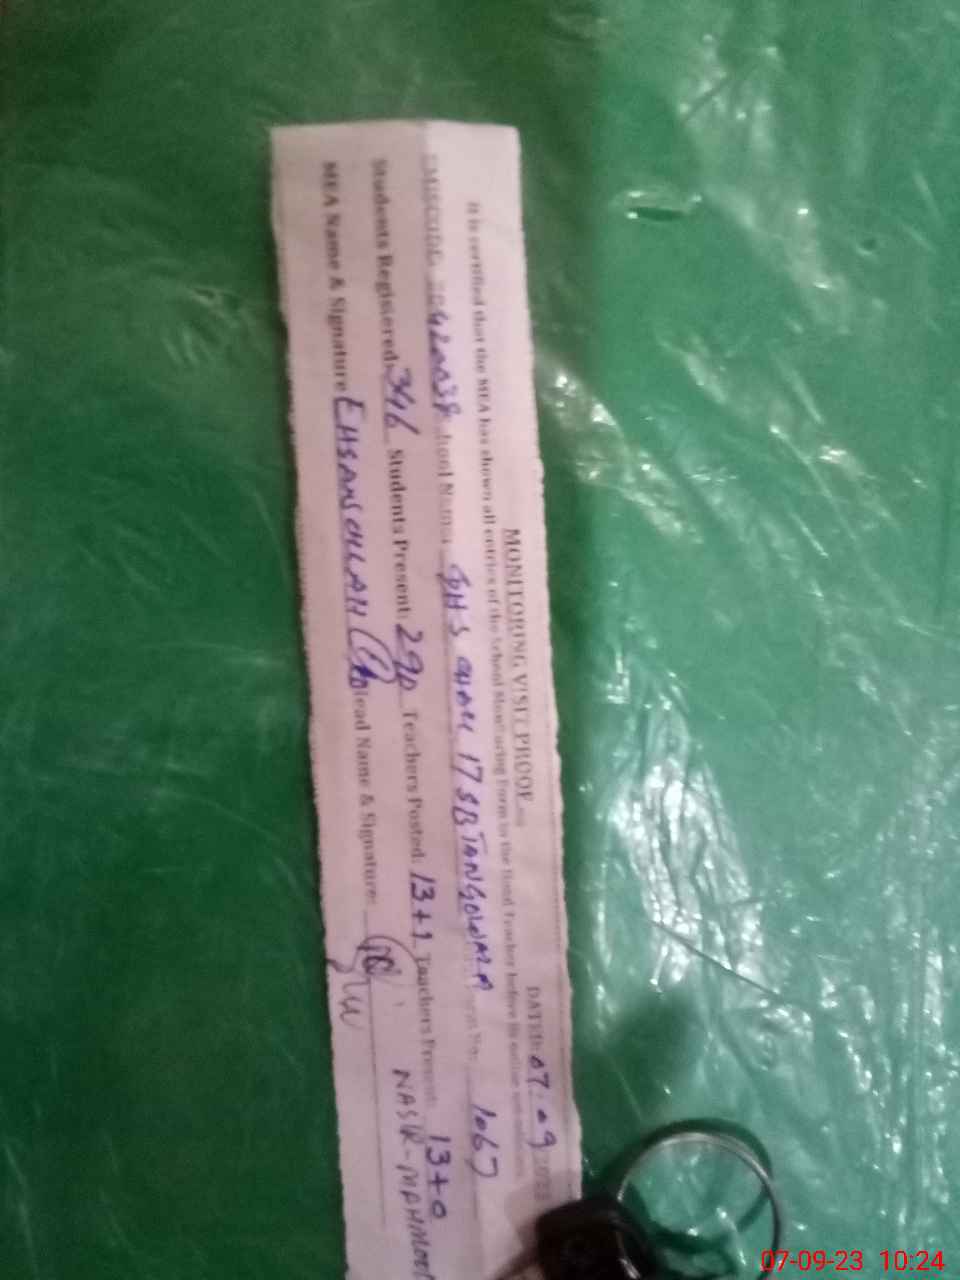 MONITORING VISIT PROOF
DATED: 07-09-2023
It is certified that the MEA has shown all entries of the School Monitoring Form to the Head Teacher before its online
School Name GHS CHAK 17 SB TANGOWALA 1067
Students Registered: 346 Students Present: 290 Teachers Posted: 13+1 Teachers Present: 13+0
MEA Name & Signature EHSANULLAH Head Name & Signature: NASIR-MAHMOOD
07-09-23 10:24